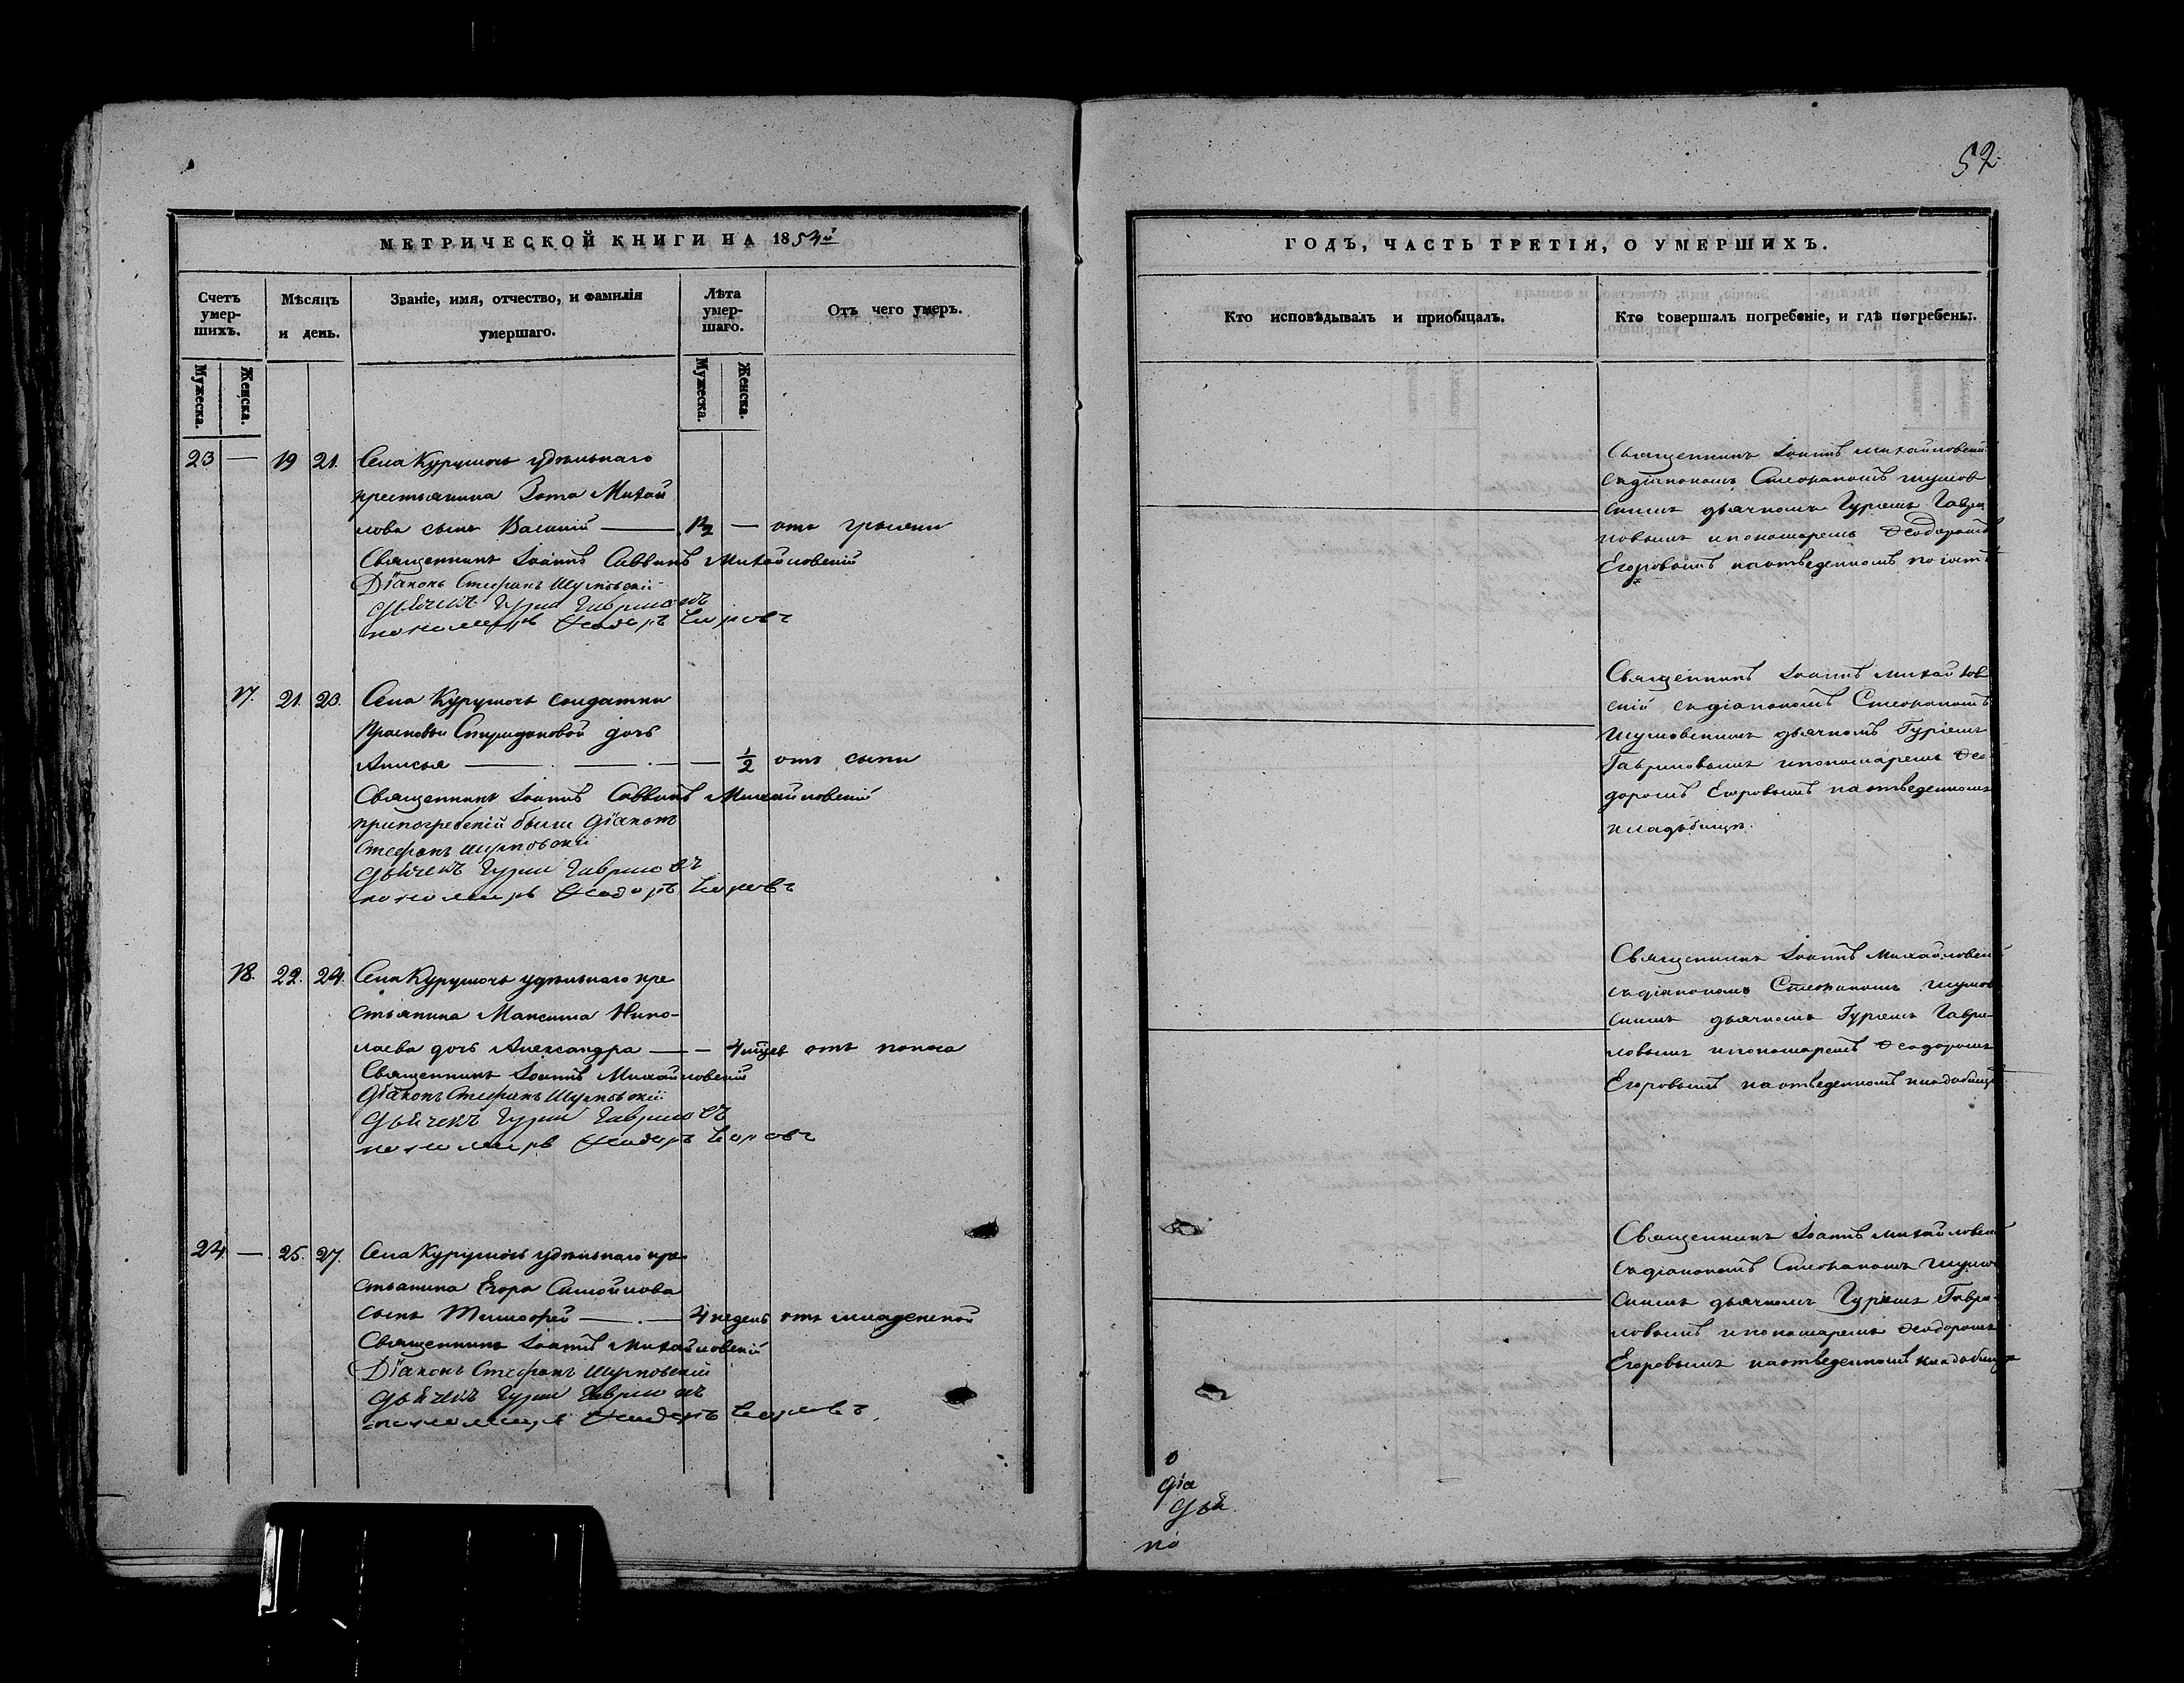 57
МЕТРИЧЕСКОЙ КНИГИ НА 1854й
Счетъ умер-
шихъ.
Мѣсяцъ
и день.
Званіе, имя, отчество, и фамилія
умершаго.
Лѣта
умер-
шаго.
Отъ чего умеръ.
Мужеска.
Женска.
Мужеска.
Женска.
23 — 19 21. Села Курумочь удѣльнаго
крестьянина Зота Михай
лова сынъ — отъ грыжи
Священникъ Іоаннъ Саввинъ Михайловскій
Діаконъ Стефанъ Шумовскій
дьячекъ Гурій Гавриловъ
пономарь Ѳеодоръ Егоровъ
17. 21. 23. Села Курумочь солдатки
Прасковьи Спиридоновой дочь
Анисья — — — 1/2 отъ сыпи
Священникъ Іоаннъ Саввинъ Михайловскій
припогребеніи были діаконъ
Стефанъ Шумовскій
дьячекъ Гурій Гавриловъ
пономарь Ѳеодоръ Егоровъ
18. 22. 24. Села Курумочь удѣльнаго кре
стьянина Максима Нико-
лаева дочь Александра — — 4 мѣцъ отъ поноса
Священникъ Іоаннъ Михайловскій
діаконъ Стефанъ Шумовскій
дьячекъ Гурій Гавриловъ
пономарь Ѳеодоръ Егоровъ
24 — 25. 27. Села Курумочь удѣльнаго кре
стьанина Егора Самойлова
сынъ Тимоѳей — 4 недель отъ младеческой
Священникъ Іоаннъ Михайловскій
Діаконъ Стефанъ Шумовскій
дьячекъ Гурій Гавриловъ
пономарь Ѳеодоръ Егоровъ
ГОДЪ, ЧАСТЬ ТРЕТІЯ, О УМЕРШИХЪ.
Кто исповѣдывалъ и пріобщалъ.
Кто совершалъ погребеніе, и гдѣ погребены.
Священникъ Іоаннъ Михайловскій
съ діакономъ Стефаномъ Шумов
скимъ дьячкомъ Гуріемъ Гаври
ловымъ и пономаремъ Ѳеодоромъ
Егоровымъ на отведенномъ погостѣ
Священникъ Іоаннъ Михайлов
скій съ діакономъ Стефаномъ
Шумовскимъ дьячкомъ Гуріемъ
Гавриловымъ и пономаремъ Ѳео
доромъ Егоровымъ на отведенномъ
кладбищѣ.
Священникъ Іоаннъ Михайловскій
съ діакономъ Стефаномъ Шумов
скимъ дьячкомъ Гуріемъ Гаври-
ловымъ и пономаремъ Ѳеодоромъ
Егоровымъ на отведенномъ кладбищѣ
Священникъ Іоаннъ Михайловскій
съ діакономъ Стефаномъ Шумов
скимъ дьячкомъ Гуріемъ Гаври-
ловымъ и пономаремъ Ѳеодоромъ
Егоровымъ на отведенномъ кладбищѣ
діа
дья
по